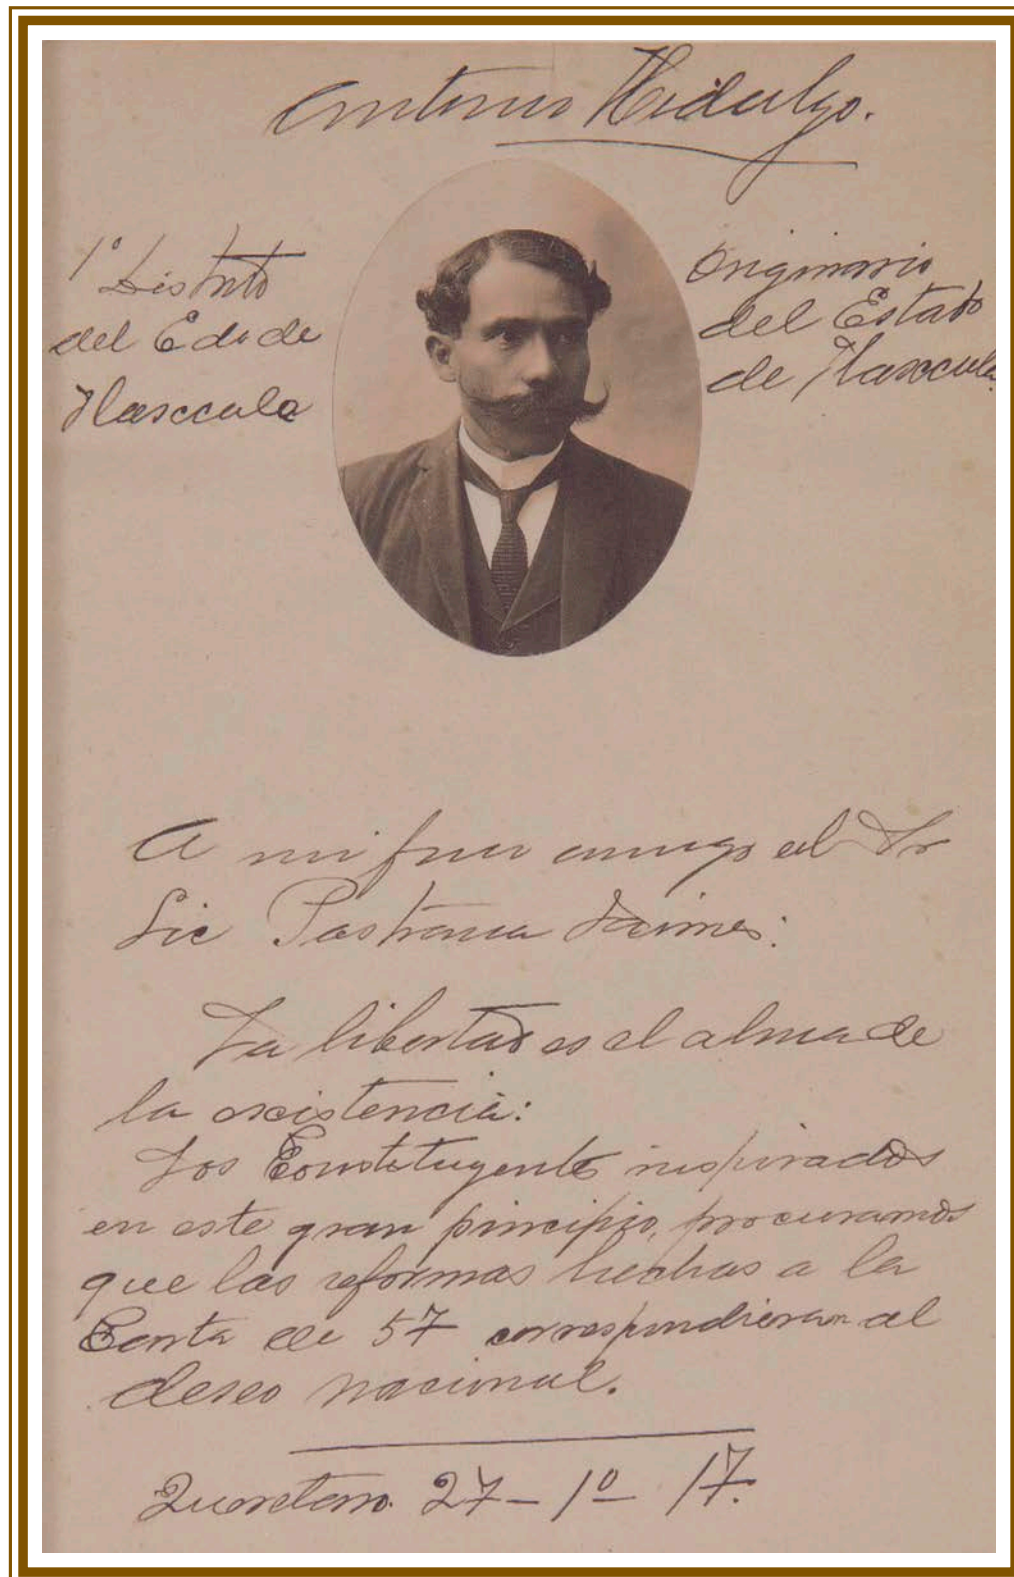 Antonio Hidalgo.
1º Distrito
del Edo de
Tlaxcala
Originario
del Estado
de Tlaxcala.
A mi fiel amigo el Sr
Lic Pastrana Jaimes:
La libertad es el alma de
la existencia:
Los Constituyentes inspirados
en este gran principio, procuramos
que las reformas hechas a la
Carta de 57 correspondieran al
deseo nacional.
Queretaro. 27 – 1º – 17.